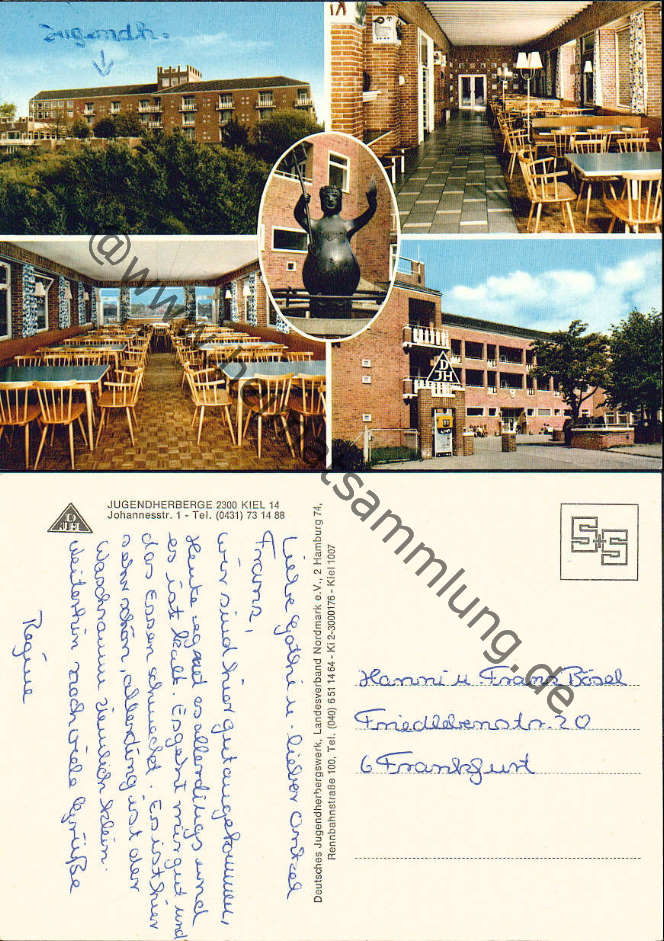 Jugendh.
DJH
@www.heimatsammlung.de
DJH
JUGENDHERBERGE 2300 KIEL 14
Johannesstr. 1 - Tel. (0431) 73 14 88
Liebe Gothi u. lieber Onkel
Franz,
wir sind hier gut angekommen,
Heute regnet es allerdings und
es ist kalt. Es geht mir gut und
das Essen schmeckt. Es ist hier
sehr schön, allerding ist der
Waschraum ziemlich klein.
Weiterhin noch viele Grüße
Regine
Deutsches Jugendherbergswerk, Landesverband Nordmark e.V., 2 Hamburg 74,
Rennbahnstraße 100, Tel. (040) 6 51 14 64 - Ki 2-3000176 - Kiel 1007
S+S
Hanni u. Franz Bösel
Friedlebenstr. 20
6 Frankfurt